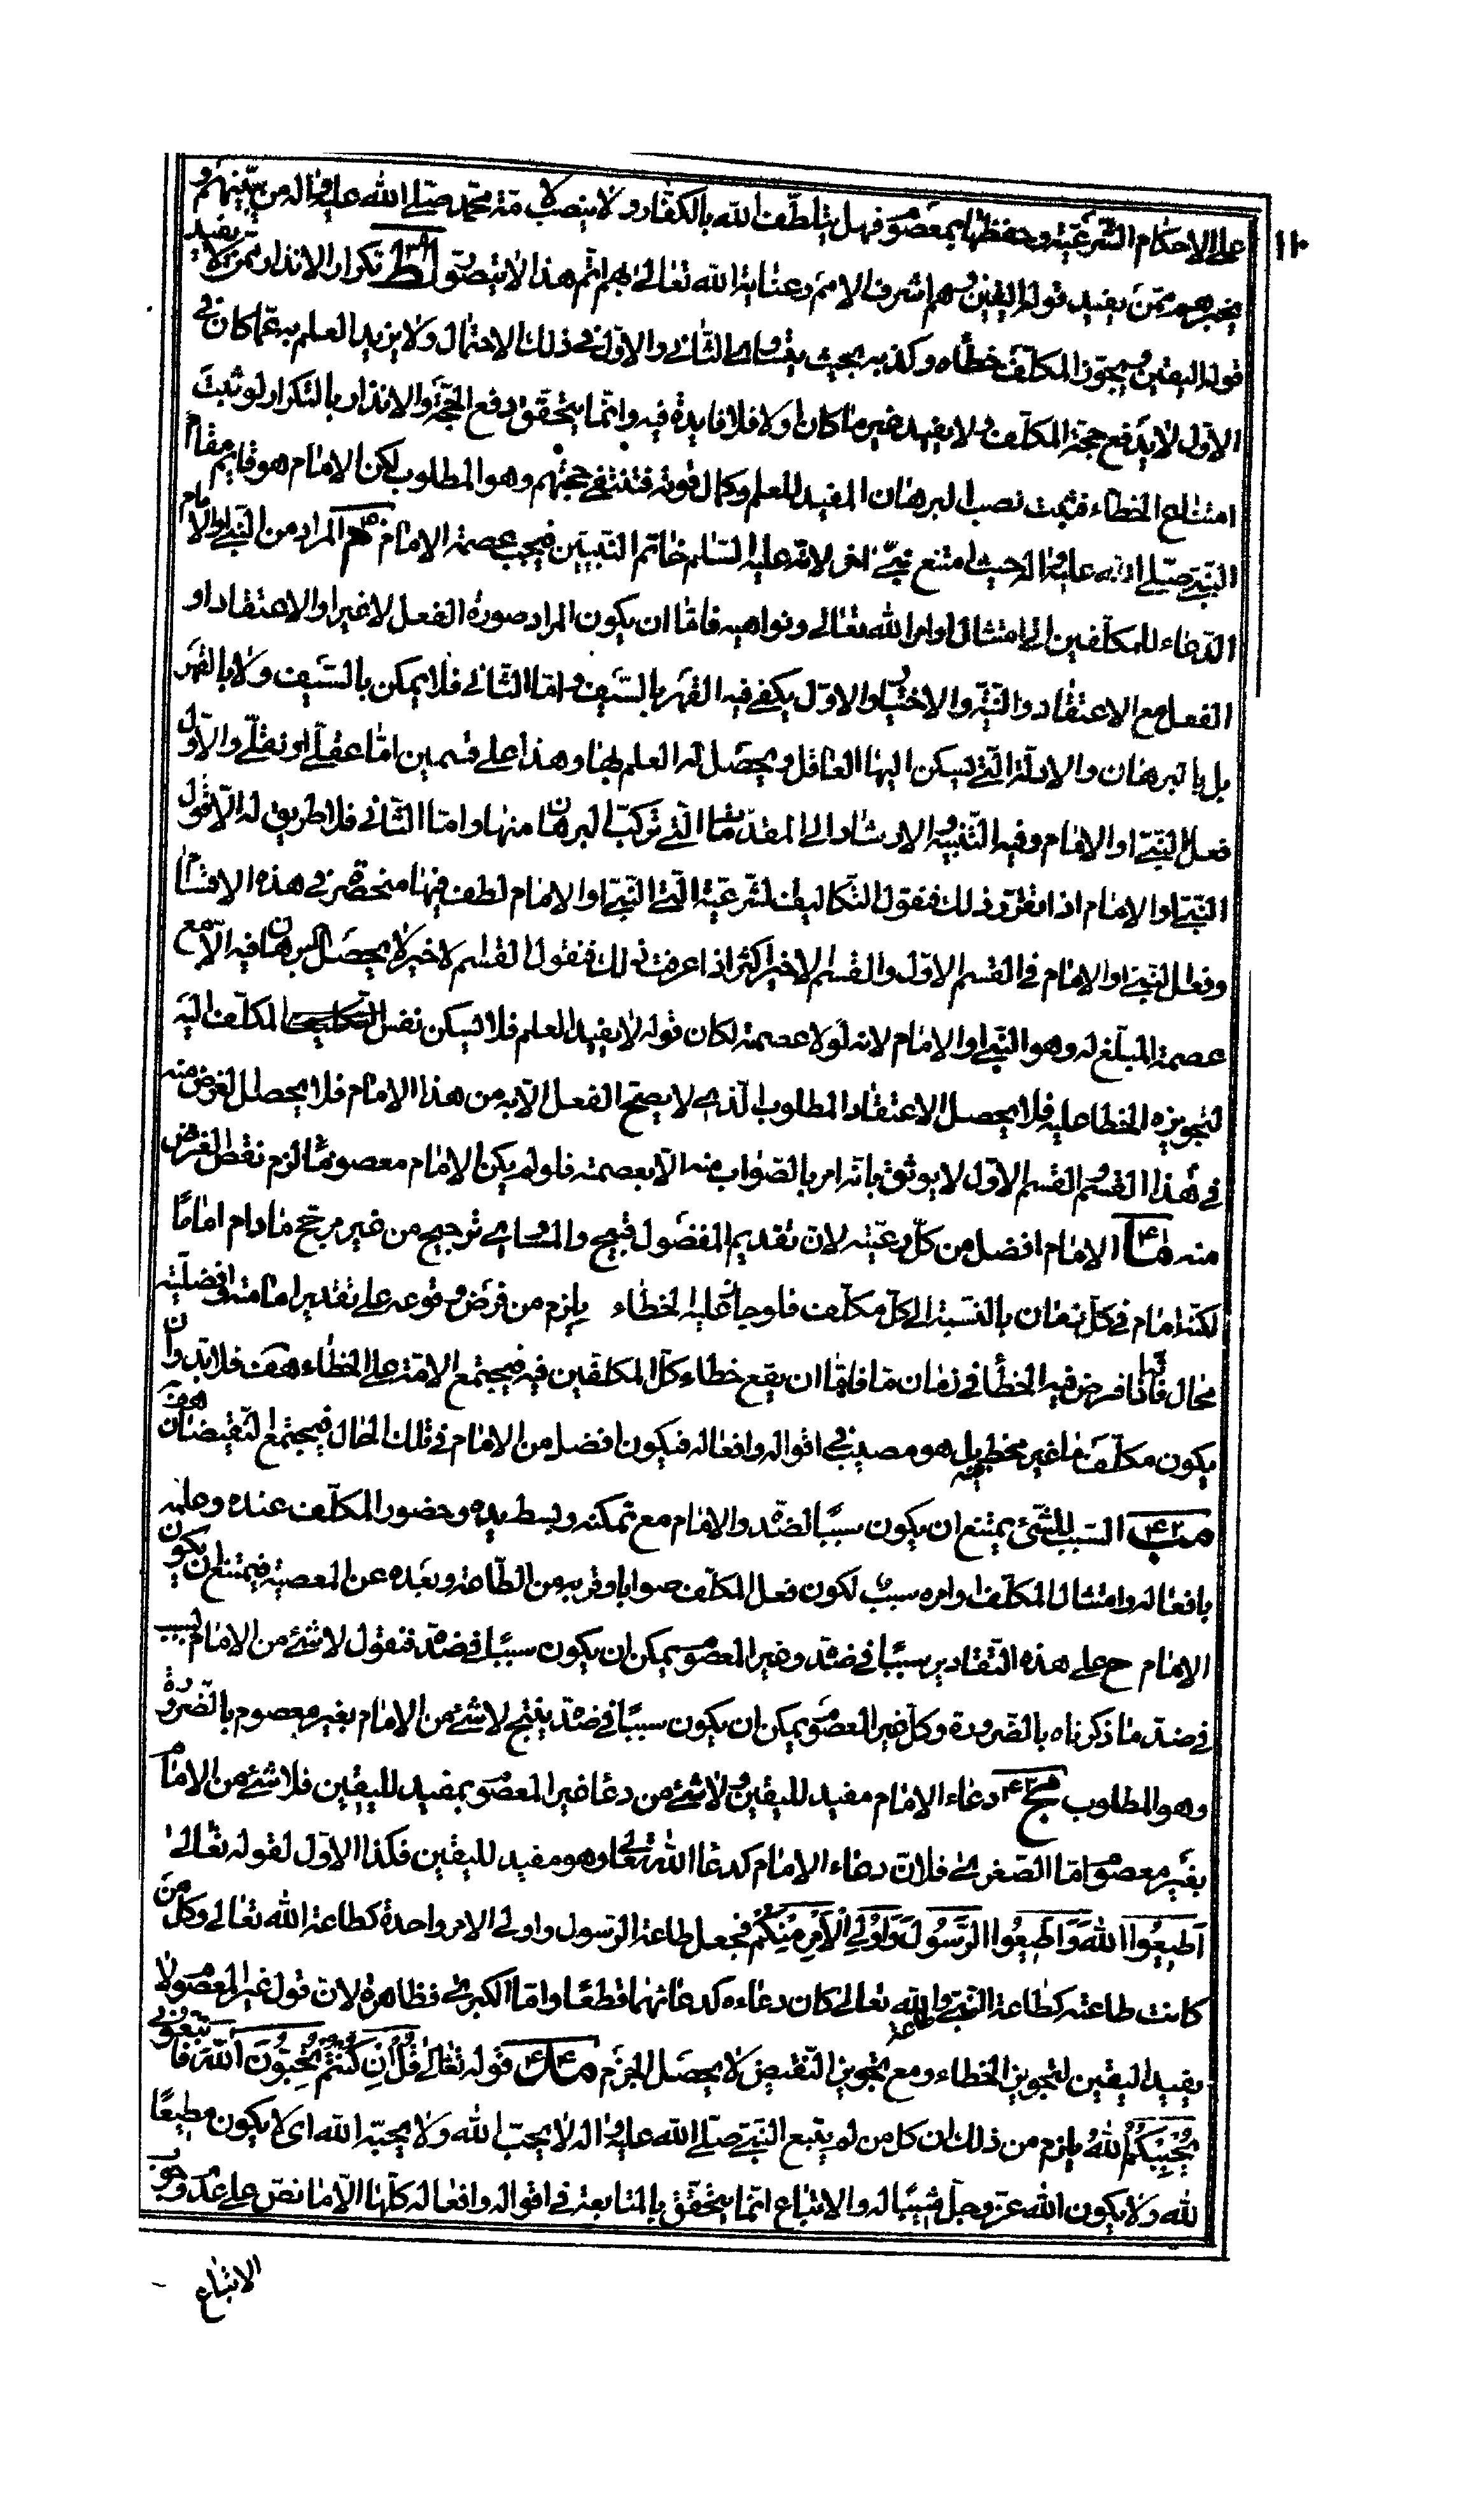 ١١٠
على الاحكام الشرعية وحفظها بمعصوم فهل يتلطف الله بالكفار ولا ينصب لامة محمد صلى الله عليه واله من يبينهم و
يخبرهم ممن يفيد قوله اليقين وهم اشرف الامم وعناية الله تعالى بهم اتم هذا لا يتصور لط تكرار الانذار ممن لا يفيد
قوله اليقين ويجوز المكلف خطاءه وكذبه بحيث يتساوى الثانى والاول فى ذلك الاحتمال ولا يزيد العلم به عما كان فى
الاول لا يدفع حجة المكلف ولا يفيد غير ما كان اولا فلا فايدة فيه وانما يتحقق دفع الحجة والانذار بالتكرار لو ثبت
امتناع الخطاء فثبت نصب البرهان المفيد للعلم وكمال قوته فتنتفى حجتهم وهو المطلوب لكن الامام هو قايم مقام
النبى صلى الله عليه واله حيث امتنع نبى اخر لانه عليه السلم خاتم النبيين فيجب عصمة الامام م المراد من النبى والامام
الدعاء للمكلفين الى امتثال اوامر الله تعالى ونواهيه فاما ان يكون المراد صورة الفعل لا غير او الاعتقاد او
الفعل مع الاعتقاد والنية والاختيار والاول يكفى فيه القهر بالسيف واما الثانى فلا يمكن بالسيف ولا بالقهر
بل بالبرهان والادلة التى تسكن اليها العاقل ويحصل له العلم بها وهذا على قسمين اما عقلى او نقلى والاول
فعل النبى او الامام وفيه التنبيه والارشاد الى المقدمات التى تركب البرهان منها واما الثانى فلا طريق له الا قول
النبى او الامام اذا تقرر ذلك فنقول التكاليف الشرعية التى النبى او الامام لطف فيها منحصرة فى هذه الاقسام
وفعل النبى او الامام فى القسم الاول والقسم الاخير اكثر اذا عرفت ذلك فنقول القسم الاخير لا يحصل البرهان فيه الا مع
عصمة المبلغ له وهو النبى او الامام لانه لولا عصمته لكان قوله لا يفيد العلم فلا تسكن نفس المكلف اليه
لتجويزه الخطا عليه فلا يحصل الاعتقاد المطلوب الذى لا يصح الفعل الا به من هذا الامام فلا يحصل الغرض منه
فى هذا القسم والقسم الاول لا يوثق بانه امر بالصواب منه الا بعصمته فلو لم يكن الامام معصوما لزم نقض الغرض
منه ما الامام افضل من كل رعيته لان تقديم المفضول قبيح والمساوى ترجيح من غير مرجح ما دام اماما
لكنه امام فى كل زمان بالنسبة الى كل مكلف فلو جاز عليه الخطاء يلزم من فرض وقوعه على تقدير امامته وافضليته
محال فانه اذا فرض فيه الخطأ فى زمان ما فاما ان يقع خطاء كل المكلفين فيه فيجتمع الامة على الخطاء هف فلا بد وان
يكون مكلف ما غير مخطئ بل هو مصيب فى اقواله وافعاله فيكون افضل من الامام فى تلك الحال فيجتمع النقيضان هف
مب السبب للشئ يمتنع ان يكون سببا لضده والامام مع تمكنه وبسط يده وحضور المكلف عنده وعلمه
بافعاله وامتثال المكلف اوامره سبب لكون فعل المكلف صوابا وقربه من الطاعة وبعده عن المعصية فيمتنع ان يكون
الامام ح على هذه التقادير سببا فى ضده وغير المعصوم يمكن ان يكون سببا فى ضده فنقول لا شئ من الامام بسبب
فى ضد ما ذكرناه بالضرورة وكل غير المعصوم يمكن ان يكون سببا فى ضده ينتج لا شئ من الامام بغير معصوم بالضرورة
وهو المطلوب مج دعاء الامام مفيد لليقين ولا شئ من دعا غير المعصوم بمفيد لليقين فلا شئ من الامام
بغير معصوم اما الصغرى فلان دعاء الامام كدعا الله تعالى وهو مفيد لليقين فكذا الاول لقوله تعالى
اَطيعُوا اللهَ وَاَطيعُوا الرَّسُولَ وَاُولِى الْاَمْرِ مِنْكُمْ فجعل طاعة الرسول واولى الامر واحدة كطاعة الله تعالى وكل من
كانت طاعته كطاعة النبى وطاعة الله تعالى كان دعاءه كدعائهما قطعا واما الكبرى فظاهرة لان قول غير المعصوم لا
يفيد اليقين لتجويز الخطاء ومع تجويز النقيض لا يحصل الجزم مد قوله تعالى قُلْ اِنْ كُنْتُمْ تُحِبُّونَ اللهَ فَاتَّبِعُونى
يُحْبِبْكُمُ اللهُ يلزم من ذلك ان كل من لم يتبع النبى صلى الله عليه واله لا يحب الله ولا يحبه الله اى لا يكون مطيعا
لله ولا يكون الله عز وجل مثيبا له والاتباع انما يتحقق بالمتابعة فى اقواله وافعاله كلها الا ما نص على عدم وجوب
الاتباع